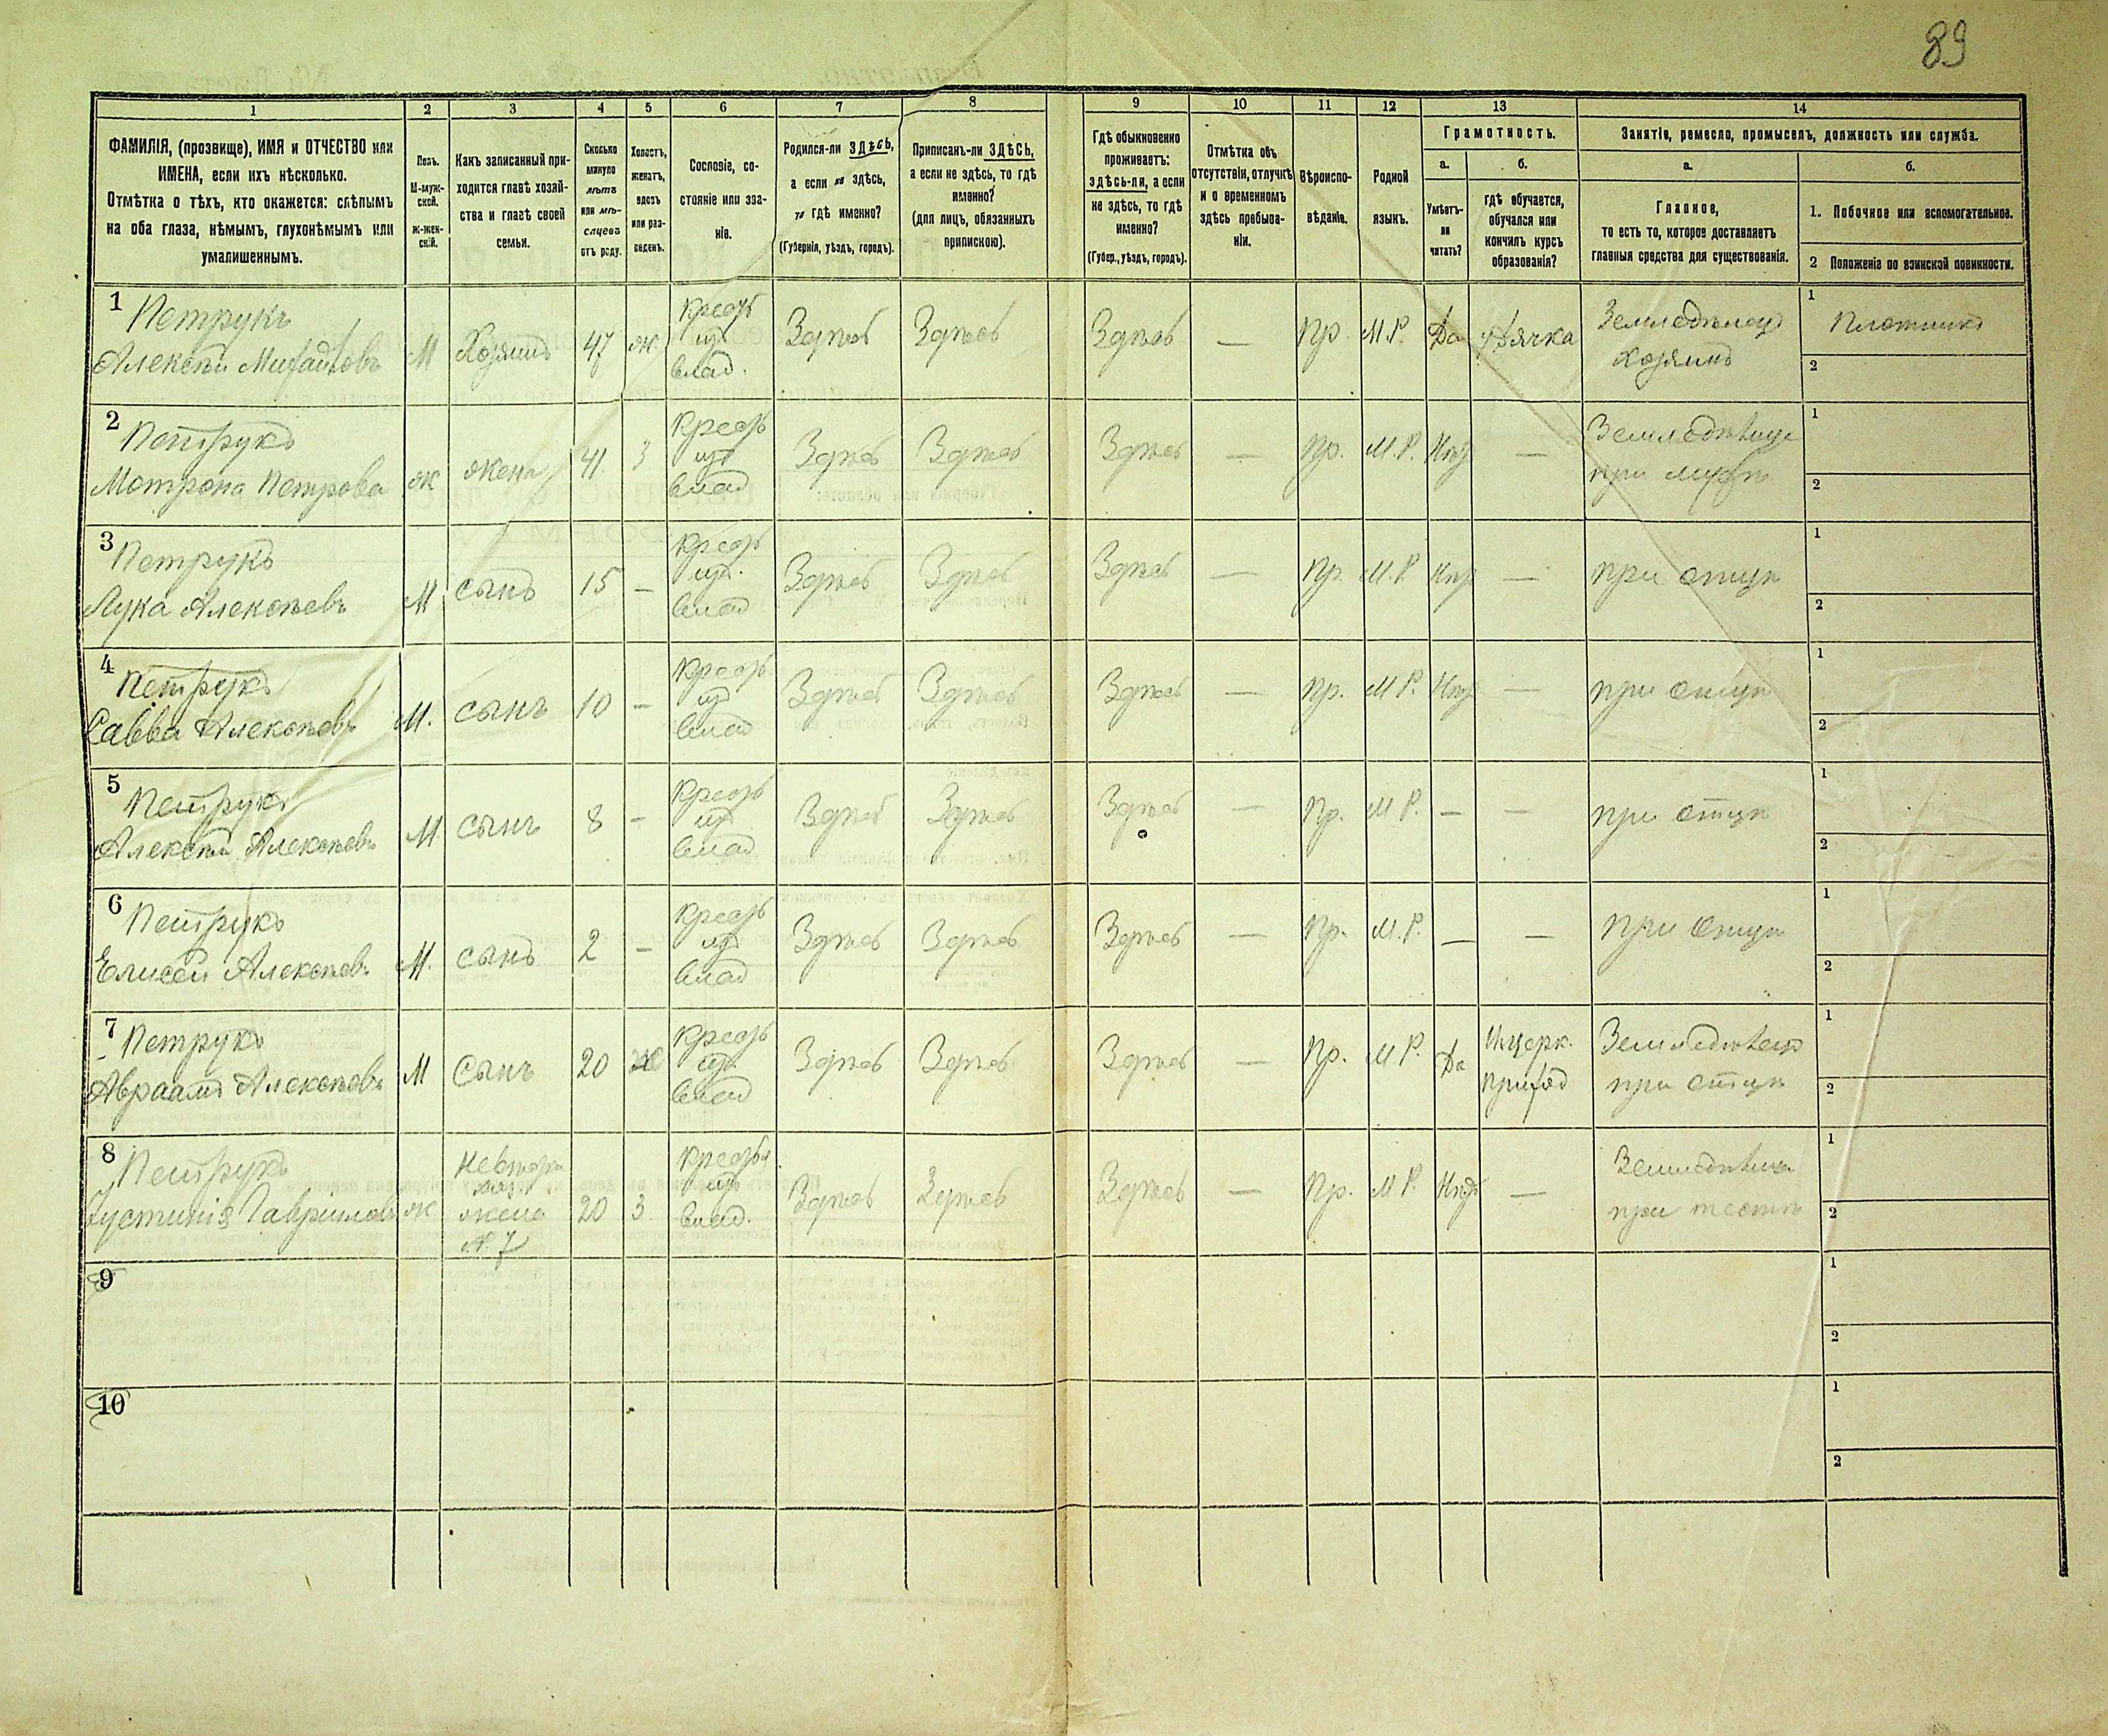 89
1 2 3 4 5 6 7 8 9 10 11 12 13 14
ФАМИЛІЯ, (прозвище), ИМЯ и ОТЧЕСТВО или
ИМЕНА, если ихъ нѣсколько.
Отмѣтка о тѣхъ, кто окажется: слѣпымъ
на оба глаза, нѣмымъ, глухонѣмымъ или
умалишеннымъ.
Полъ.
М-муж-
ской.
Ж-жен-
скій.
Какъ записанный при-
ходится главѣ хозяй-
ства и главѣ своей
семьи.
Сколько
минуло
лѣтъ
или мѣ-
сяцевъ
отъ роду.
Холостъ,
женатъ,
вдовъ
или раз-
веденъ.
Сословіе, со-
стояніе или зва-
ніе.
Родился-ли ЗДѢСЬ,
а если не здѣсь,
то гдѣ именно?
(Губернія, уѣздъ, городъ).
Приписанъ-ли ЗДѢСЬ,
а если не здѣсь, то гдѣ
именно?
(для лицъ, обязанныхъ
припискою).
Гдѣ обыкновенно
проживаетъ:
здѣсь-ли, а если
не здѣсь, то гдѣ
именно?
(Губер., уѣздъ, городъ).
Отмѣтка объ
отсутствіи, отлучкѣ
и о временномъ
здѣсь пребыва-
ніи.
Вѣроиспо-
вѣданіе.
Родной
языкъ.
Грамотность.
а.
Умѣетъ-
ли
читать?
б.
гдѣ обучается,
обучался или
кончилъ курсъ
образованія?
Занятіе, ремесло, промыселъ, должность или служба.
а.
Главное,
то есть то, которое доставляетъ
главныя средства для существованія.
б.
1. Побочное или вспомогательное.
2 Положеніе по воинской повинности.
1 Петрукъ
Алексѣй Михайловъ
М
Хозяинъ
47
ж
Крестъ
изъ
влад.
Здѣсь
Здѣсь
Здѣсь
—
Пр.
М.Р.
Да
у Дячка
Земледѣлецъ
хозяинъ
1 Плотникъ
2
2 Петрукъ
Мотрона Петрова
ж
жена
41
З
Крестъ
изъ
влад
Здѣсь
Здѣсь
Здѣсь
—
Пр.
М.Р.
Нѣт
—
Земледѣлица
при мужѣ
1
2
3 Петрукъ
Лука Алексѣевъ
М
сынъ
15
—
Крестъ
изъ
влад
Здѣсь
Здѣсь
Здѣсь
—
Пр.
М.Р.
Нѣт
—
при отцѣ
1
2
4 Петрукъ
Савва Алексѣевъ
М.
сынъ
10
—
Крестъ
изъ
влад
Здѣсь
Здѣсь
Здѣсь
—
Пр.
М.Р.
Нѣт
—
при отцѣ
1
2
5 Петрукъ
Алексѣй Алексѣевъ
М.
сынъ
8
—
Крестъ
изъ
влад
Здѣсь
Здѣсь
Здѣсь
—
Пр.
М.Р.
—
—
при отцѣ
1
2
6 Петрукъ
Елисей Алексѣевъ
М.
сынъ
2
—
Крестъ
изъ
влад
Здѣсь
Здѣсь
Здѣсь
—
Пр.
М.Р.
—
—
при отцѣ
1
2
7 Петрукъ
Авраамъ Алексѣевъ
М
Сынъ
20
ж
Крестъ
изъ
влад
Здѣсь
Здѣсь
Здѣсь
—
Пр.
М.Р.
Да
приход
Земледѣлецъ
при отцѣ
1
2
8 Петрукъ
Іустинія Гаврилова
ж
Невѣстка
жена
№ 7
20
З
Крестья
изъ
влад.
Здѣсь
Здѣсь
Здѣсь
—
Пр.
М.Р.
Нѣт
—
Земледѣлица
при тестѣ
1
2
9
1
2
10
1
2